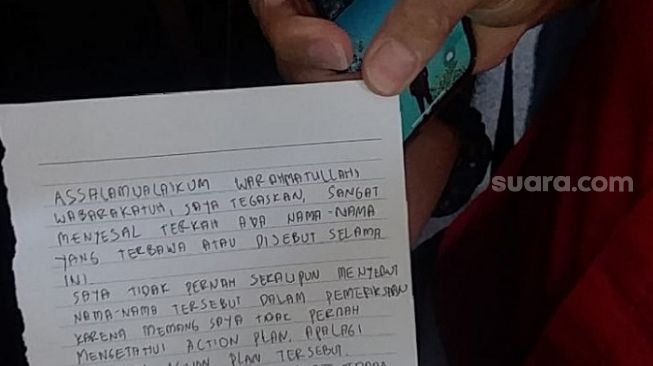 suara.com
ASSALAMUALAIKUM WARAHMATULLAHI
WABARAKATUH, SAYA TEGASKAN, SANGAT
MENYESAL TERKAH ADA NAMA-NAMA
YANG TERBAWA ATAU DISEBUT SELAMA
INI.
SAYA TIDAK PERNAH SEKALIPUN MENYEBUT
NAMA-NAMA TERSEBUT DALAM PEMERIKSAAN
KARENA MEMANG SAYA TIDAK PERNAH
MENGETAHUI ACTION PLAN, APALAGI
PLAN TERSEBUT.